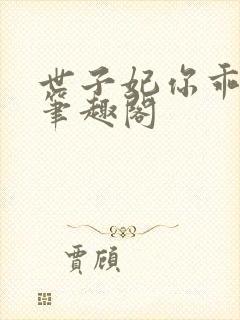 世子妃你乖
笔趣阁
贾顾